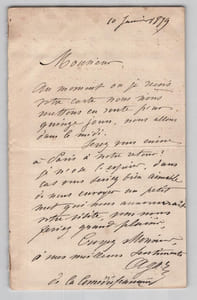 10 Janvier 1879
Monsieur
Au moment où je reçois
votre carte nous nous
mettons en route pour
quinze jours, nous allons
dans le midi.
Serez vous encore
à Paris à notre retour?
Je veux l'espérer, dans ce
cas vous seriez bien aimable
de nous envoyer un petit
mot qui nous annoncerait
votre visite, vous nous
feriez grand plaisir.
Croyez Monsieur
à nos meilleurs sentiments
de la Comédie française